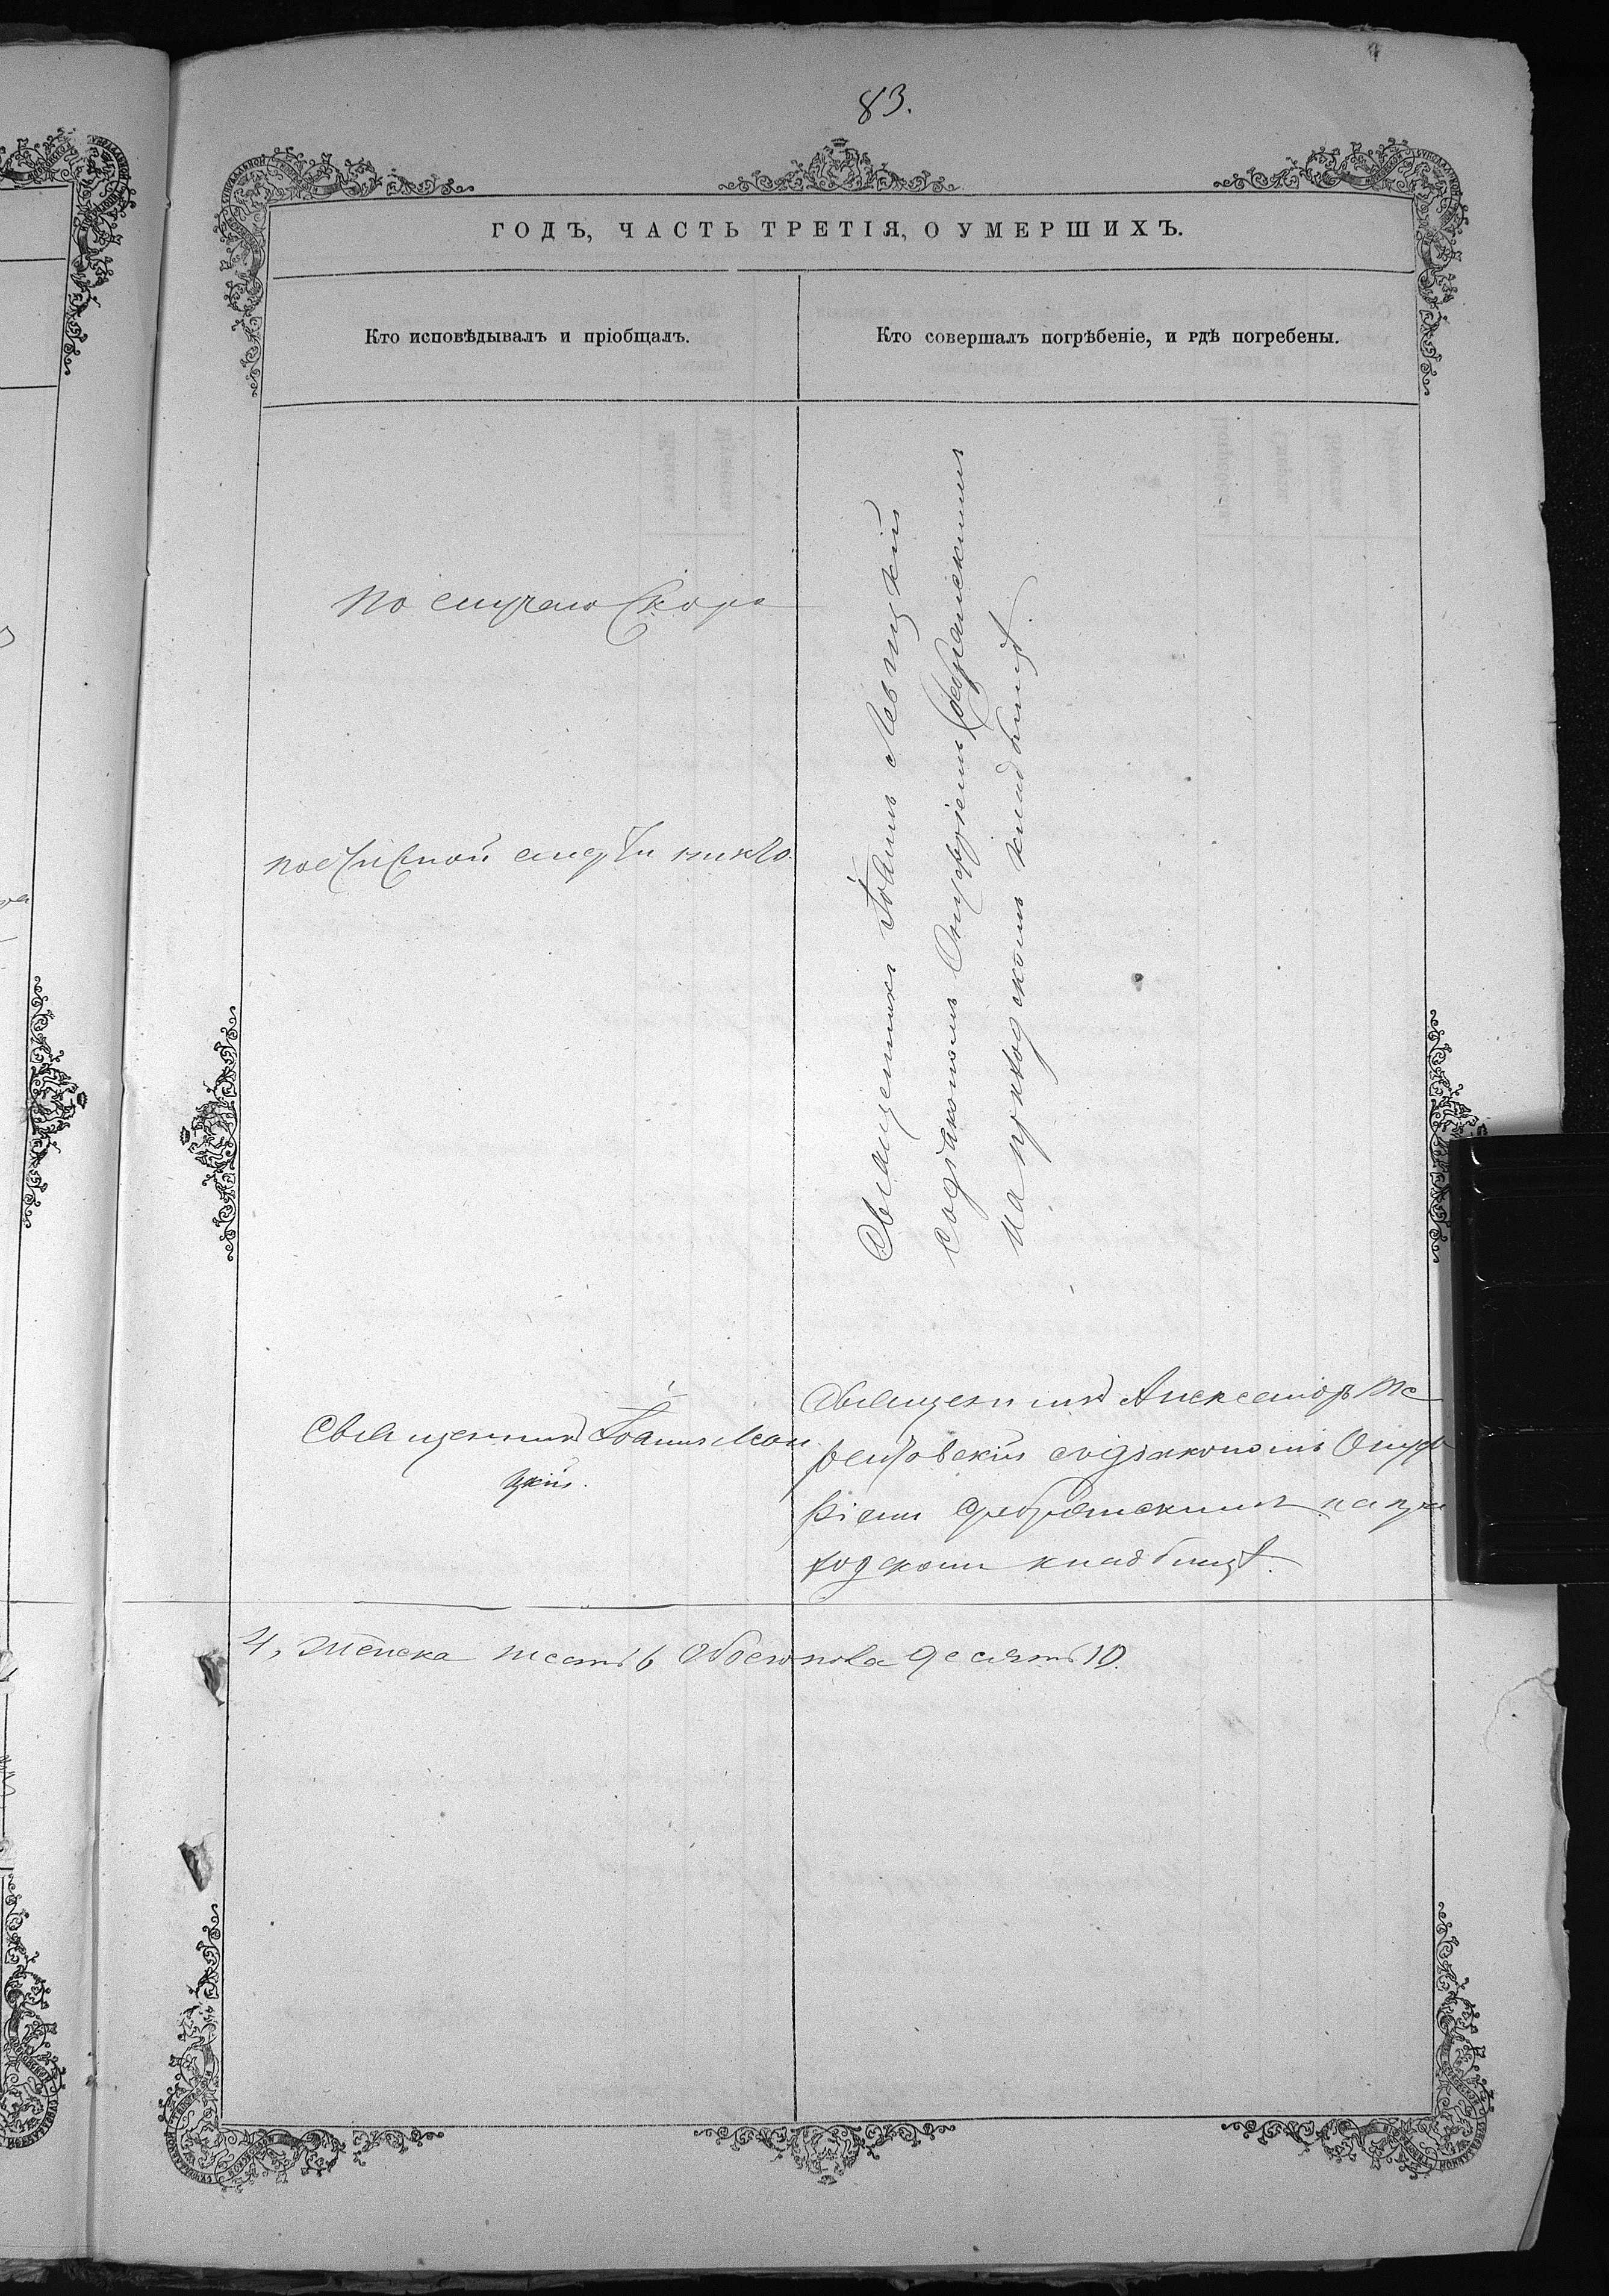 83.
ГОДЪ, ЧАСТЬ ТРЕТІЯ, О УМЕРШИХЪ.
Кто исповѣдывалъ и пріобщалъ.
Кто совершалъ погрѣбеніе, и гдѣ погребены.
по случаю Скоро
постижной смерти никто.
Священникъ Іоаннъ Левицкій
содіакономъ Онуфріемъ Серблянскимъ
на приходскомъ кладбищѣ.
Священникъ Іоаннъ Леви
цкій.
Священникъ Александръ
содіакономъ Онуф
ріемъ на при
ходскомъ кладбищѣ.
4, Женска шесть 6 Обоего пола десять 10.